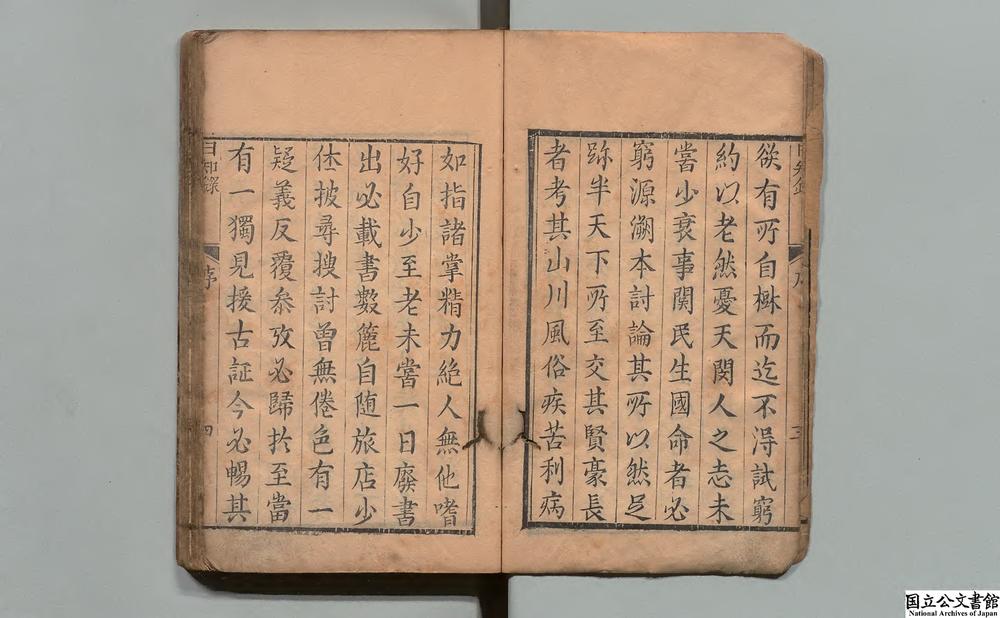 欲有所自樹而迄不得試窮
約以老然憂天閔人之志未
嘗少衰事關民生國命者必
窮源溯本討論其所以然足
跡半天下所至交其賢豪長
者考其山川風俗疾苦利病
如指諸掌精力絶人無他嗜
好自少至老未嘗一日廢書
出必載書數簏自随旅店少
休披尋搜討曾無倦色有一
疑義反覆叅攷必歸扵至當
有一獨見援古証今必暢其
日知錄
序
四
国立公文書館
National Archives of Japan